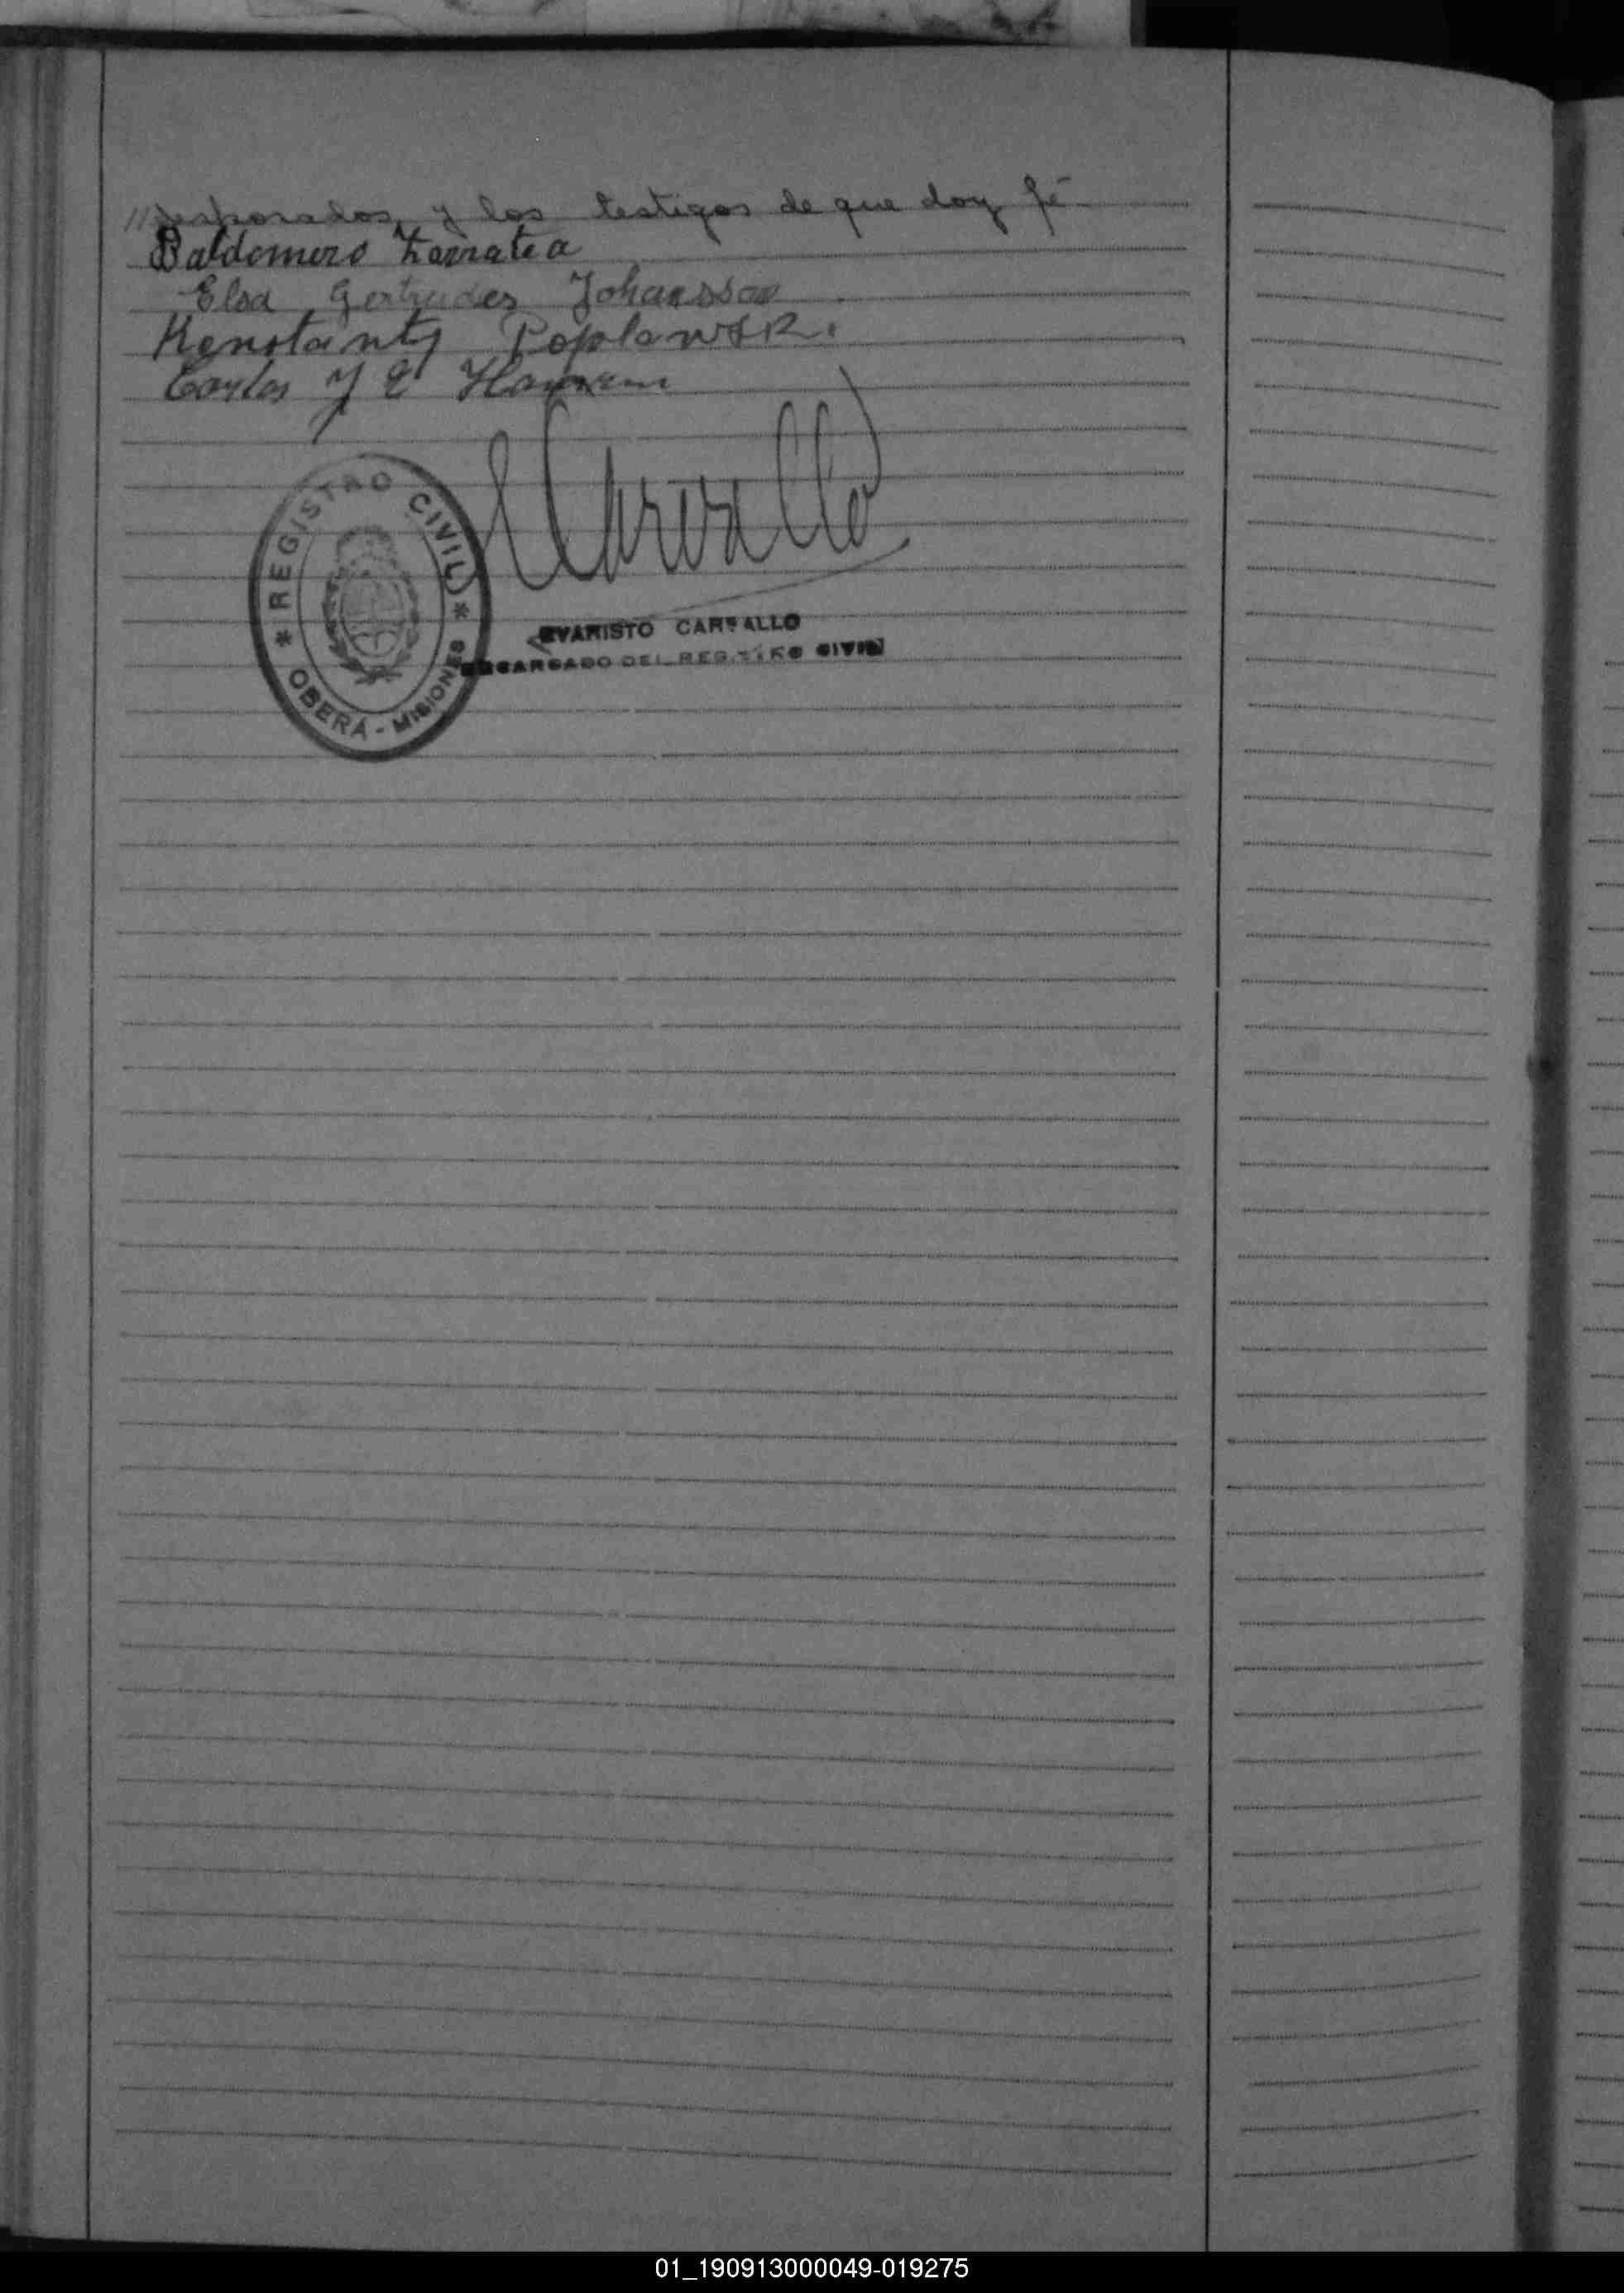 // desposados, y los testigos de que doy fé-
Baldomero Zarratea
Elsa Gertrudes Johansson
Konstanty Poplawski.
Carlos J E
Carvallo
* REGISTRO CIVIL *
OBERÁ - MISIONES
EVARISTO CARVALLO
ENCARGADO DEL REGISTRO CIVIL
01_190913000049-019275